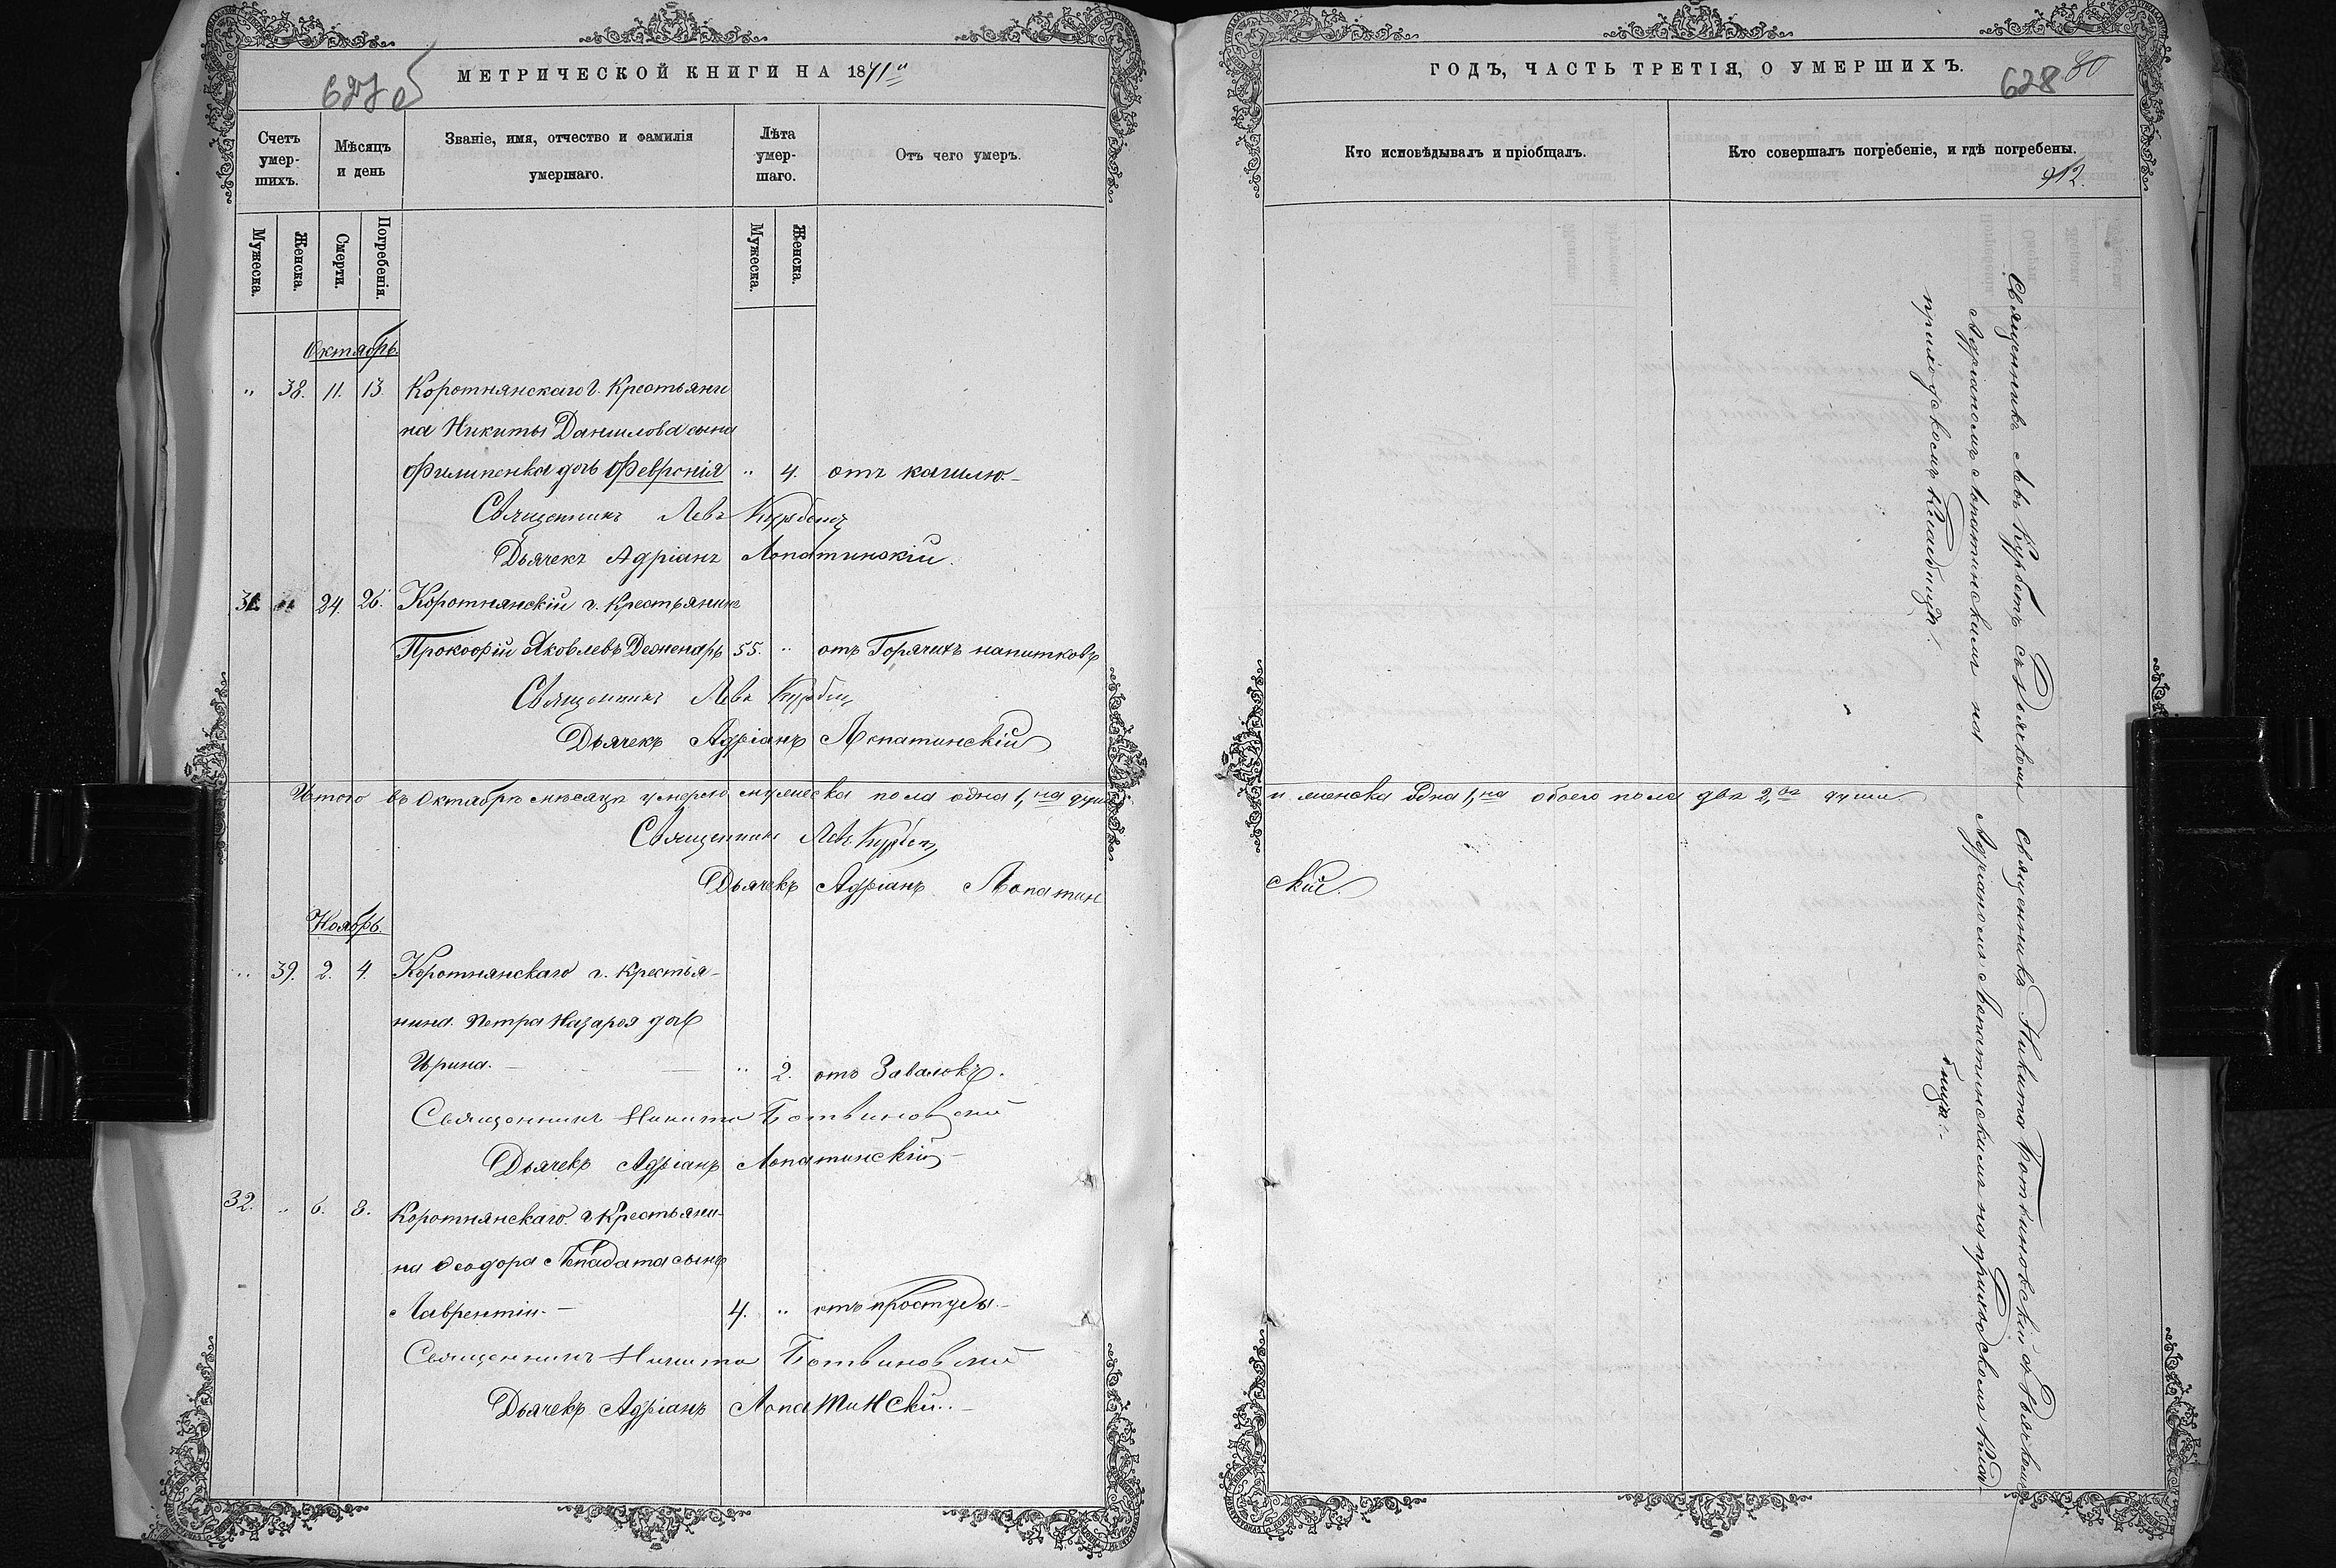 627 об
МЕТРИЧЕСКОЙ КНИГИ НА 1871й
Счетъ умер-шихъ.
Мѣсяцъ и день
Званіе, имя, отчество и фамилія умершаго.
Лѣта умер-шаго.
Отъ чего умеръ.
Мужеска.
Женска.
Смерти.
Погребенія.
Мужеска.
Женска.
Октябрь
" 38. 11. 13. Коротнянскаго О. Крестьяни
на Никиты Данилова сына
Филипенка дочь Феврoнія " 4. отъ кашлю.
Священникъ Левъ Курбетъ
Дьячекъ Адріанъ Лопатинскій.
31. " 24 26. Коротнянскій о. Крестьянинъ
Прокофій Яковлевъ 55. " отъ Горячихъ напитковъ
Священникъ Левъ Курбетъ
Дьячекъ Адріанъ Лопатинскій
Итого въ Октябрѣ мѣсяцѣ умерло мужеска пола одна 1, на душа
Священникъ Левъ Курбетъ
Дьячекъ Адріанъ Лопатин
Ноябрь
" 39. 2. 4. Коротнянскаго о. крестья-
нина Петра Назароя дочь
Ирина. " 2. отъ Завалокъ.
Священникъ Никита Ботвиновскій
Дьячекъ Адріанъ Лопатинскій
32. " 6. 8. Коротнянскаго о. Крестьяни-
на Ѳеодора Лападата сынъ
Лаврентій 4. " отъ простуды.
Священникъ Никита Ботвиновскій
Дьячекъ Адріанъ Лопатинскій.
ГОДЪ, ЧАСТЬ ТРЕТІЯ, О УМЕРШИХЪ.
628 80
Кто исповѣдывалъ и пріобщалъ.
Кто совершалъ погребеніе, и гдѣ погребены.
912.
Священникъ Левъ Курбетъ съ Дьячкомъ
Адріаномъ Лопатинскимъ на
приходскомъ Кладбищѣ.
и женска одна 1, на обоего пола двѣ 2, вѣ души.
скій.
Священникъ Никита Ботвиновскій съ Дьячкомъ
Адріаномъ Лопатинскимъ на приходскомъ Клад
бищѣ.